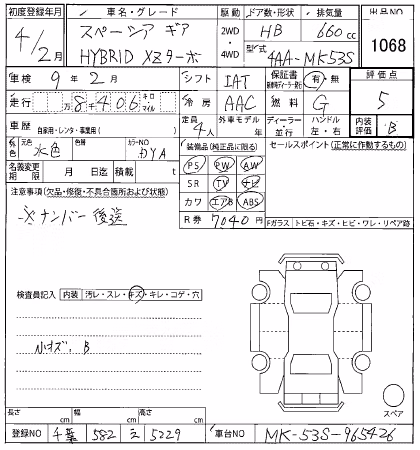 初度登録年月 車名・グレード 駆動 ドア数・形状 排気量 出品NO
4/2月 スペーシア ギア 2WD・4WD HB 660cc 1068
HYBRID XZターボ 型式 4AA-MK53S
車検 9年2月 シフト IAT 保証書 有 無 評価点
走行 8千406 キロ マイル 冷房 AAC 燃料 G 5
車歴 自家用・レンタ・事業用( ) 定員 4人 外車モデル 年 ディーラー・並行 ハンドル 左・右 内装評価 B
色 元色 水色 色替 カラーNO DYA 装備品(純正品に限る) セールスポイント(正常に作動するもの)
名義変更期限 月 日迄 積載 t PS PW AW
注意事項(欠品・修復・不具合箇所および状態) SR TV ナビ
ナンバー後送 カワ エアB ABS
R券 7040円 Fガラス トビ石・キズ・ヒビ・ワレ・リペア跡
検査員記入 内装 汚レ・スレ・キズ・キレ・コゲ・穴
小キズ、B
スペア
長さ cm 幅 cm 高さ cm
登録NO 千葉 582 え 5229 車台NO MK-53S-965426